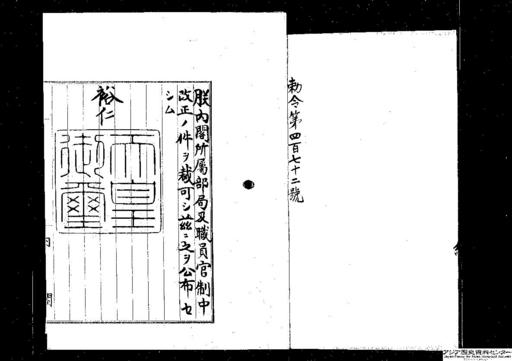 勅令第四百七十二號
朕内閣所属部局及職員官制中
改正ノ件ヲ裁可シ茲ニ之ヲ公布セ
シム
裕仁
天皇
御璽
内閣
アジア歴史資料センター